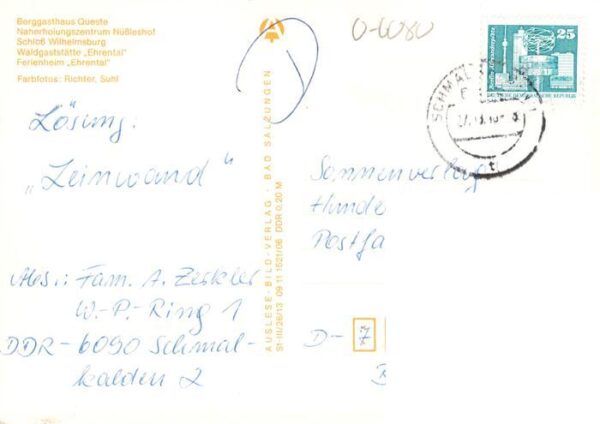 Berggasthaus Queste
Naherholungszentrum Nüßleshof
Schloß Wilhelmsburg
Waldgaststätte „Ehrental“
Ferienheim „Ehrental“
Farbfotos: Richter, Suhl
Lösung:
„Leinwand“
Abs.: Fam. A. Zeukler
W.-P.-Ring 1
DDR-6090 Schmal-
kalden 2
AUSLESE-BILD-VERLAG · BAD SALZUNGEN
St-III/26/13 09 11 1521/06 DDR 0,20 M
0-6080
25
DEUTSCHE DEMOKRATISCHE REPUBLIK
SCHMAL
Sonnenverlag
Hunde
Postfa
D- 7